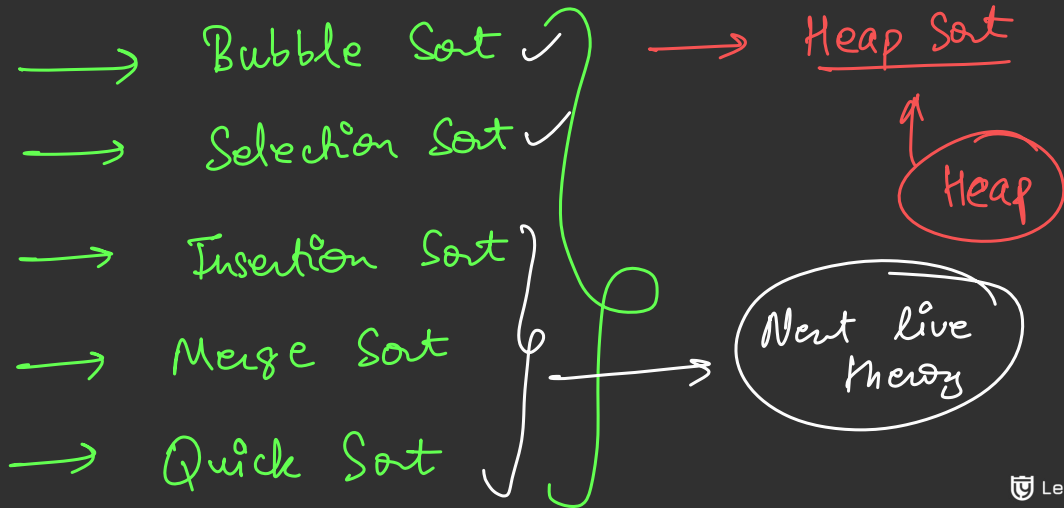 Bubble Sort
Selection Sort
Insertion Sort
Merge Sort
Quick Sort
Heap Sort
Heap
Next live
theory
Le